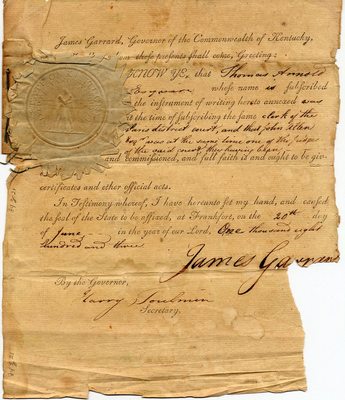 James Garrard, Governor of the Commonwealth of Kentucky,
these presents shall come, Greeting:
KNOW YE, that Thomas Arnold
Esquire whose name is subscribed
the instrument of writing hereto annexed was
at the time of subscribing the same clerk of the
Paris district court, and that John Allen
Esqr was at the same time one of the judges
of the said court, they having been
and commissioned, and full faith is and ought to be giv-
certificates and other official acts.
In Testimony whereof, I have hereunto set my hand, and caused
the seal of the State to be affixed, at Frankfort, on the 20th day
of June in the year of our Lord, One thousand eight
hundred and three
James Garrard
By the Governor,
Harry Toulmin
Secretary.